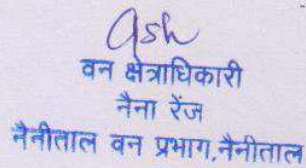 Ash
वन क्षेत्राधिकारी
नैना रेंज
नैनीताल वन प्रभाग,नैनीताल